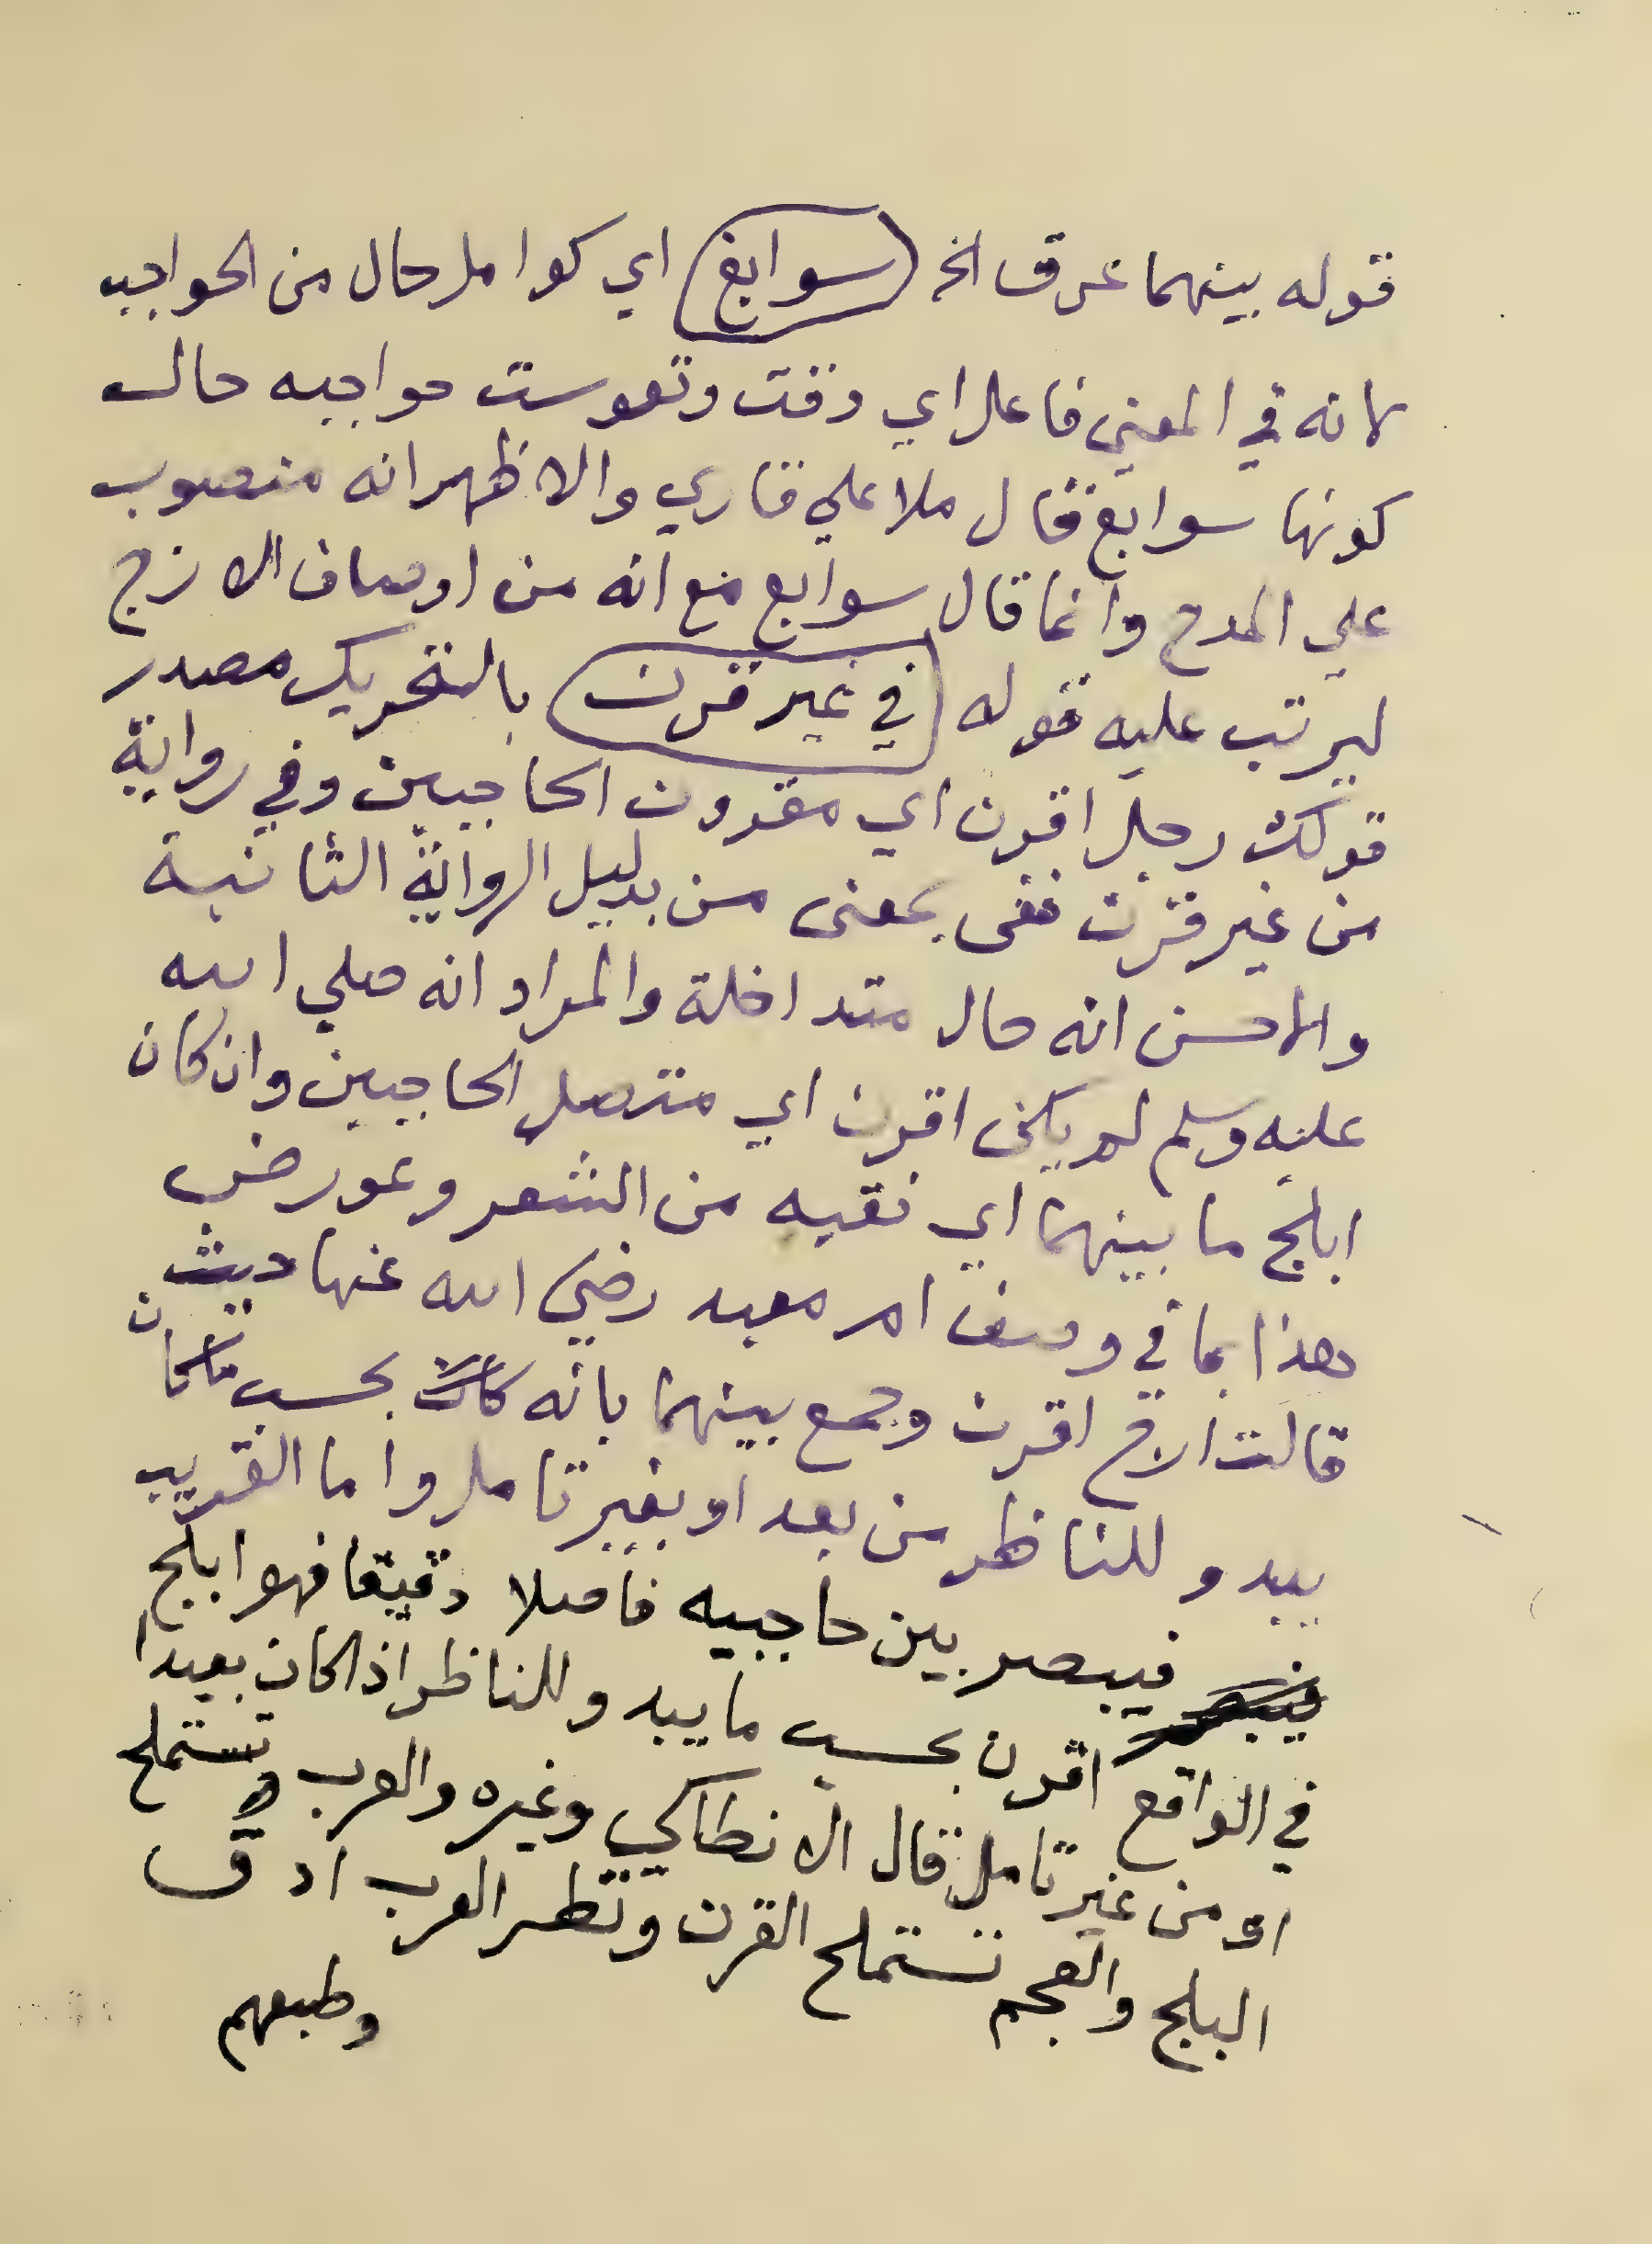 قوله بينهما عرق الخ (سوابغ) اي كوامل حال من الحواجب
لانه في المعني فاعل اي دقت وتقوست حواجبه حال
كونها سوابغ قال ملا علي قاري والاظهر انه منصوب
علي المدح وانما قال سوابغ مع انه من اوصاف الازج
ليرتب عليه قوله (في غير قرن) بالتحريك مصدر
قولك رجل اقرن اي مقرون الحاجبين وفي رواية
من غير قرن ففى بمعنى من بدليل الرواية الثانية
والاحسن انه حال متداخلة والمراد انه صلي الله
عليه وسلم لم يكن اقرن اي متصل الحاجبين وان كان
ابلج ما بينهما اي نقيه من الشعر وعورض
هذا بما في وصف ام معبد رضي الله عنها حيث
قالت ازج اقرن وجمع بينهما بانه كان بحسب ما كان
يبدو للناظر من بعد او بغير تامل واما القريب
فيبصر بين حاجبيه فاصلا دقيقا فهو ابلج
في الواقع اقرن بحسب ما يبدو للناظر اذا كان بعيدا
او من غير تامل قال الانطاكي وغيره والعرب تستملح
البلج والعجم تستملح القرن ونظر العرب ادق
وطبعهم